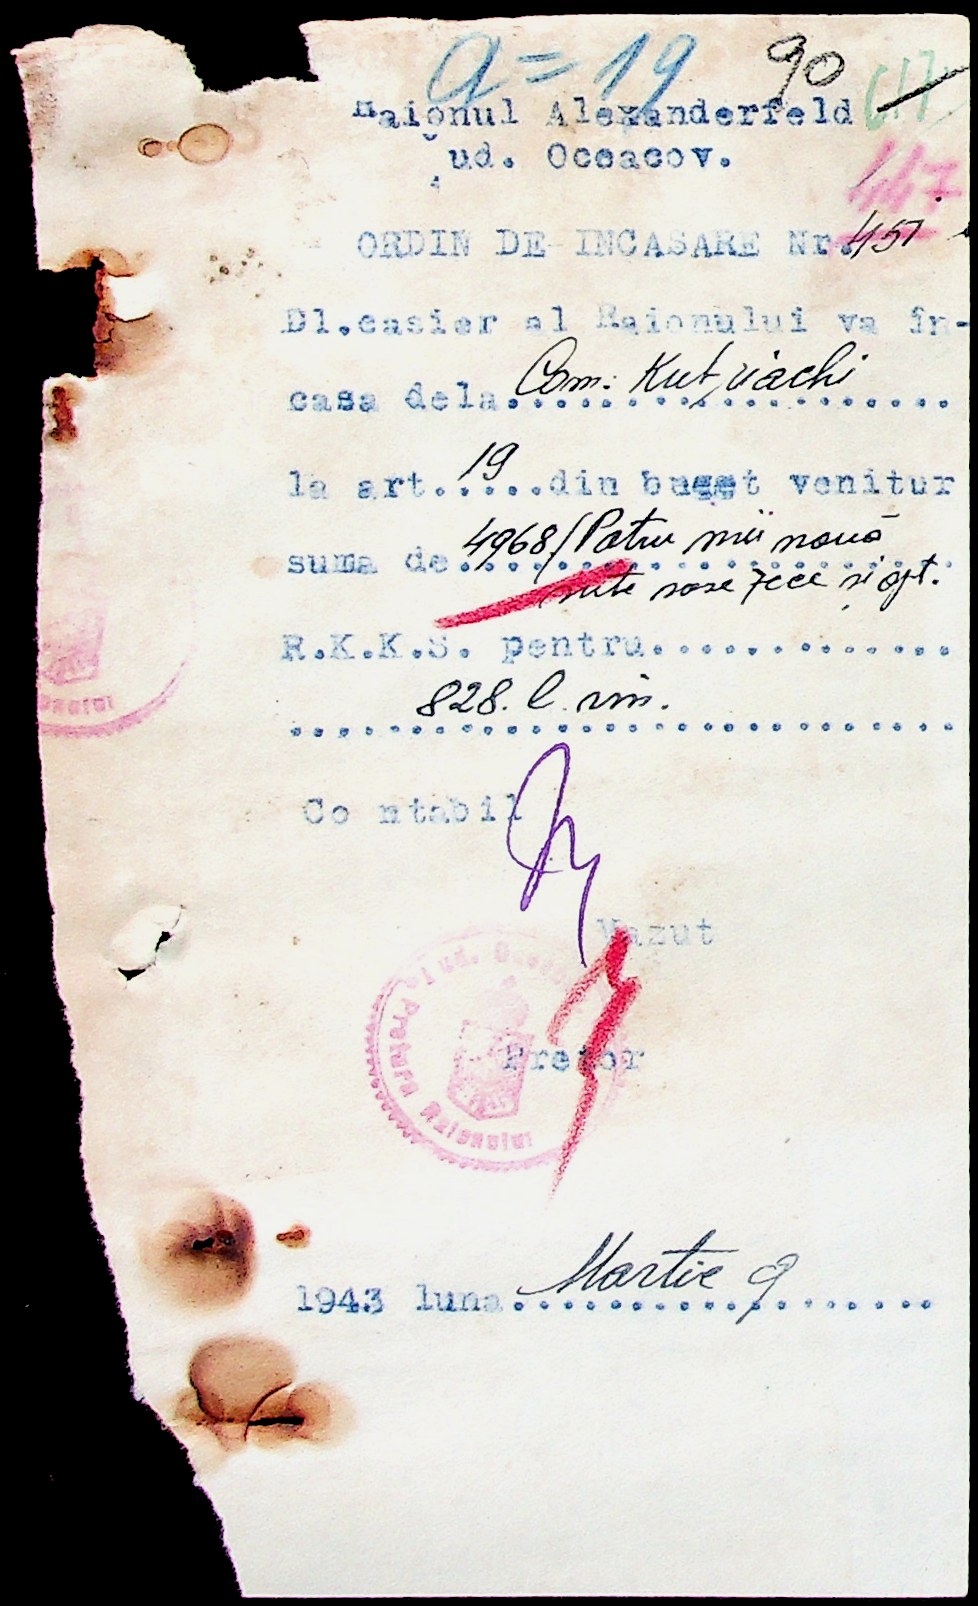 a = 19 90
Raionul Alexanderfeld
Jud. Oceacov.
447
ORDIN DE INCASARE Nr. 457
Dl.casier al Raionului va în-
casa dela.......Com. Kutziachi
la art. 19 din buget venitur
suma de 4968/Patru mii nouă
sute șase zece și opt.
R.K.K.S. pentru..............
828. l. vin.
Co ntabil
Vazut
Jud. Oceacov
Pretura Raionului
Pretor
1943 luna Martie 9